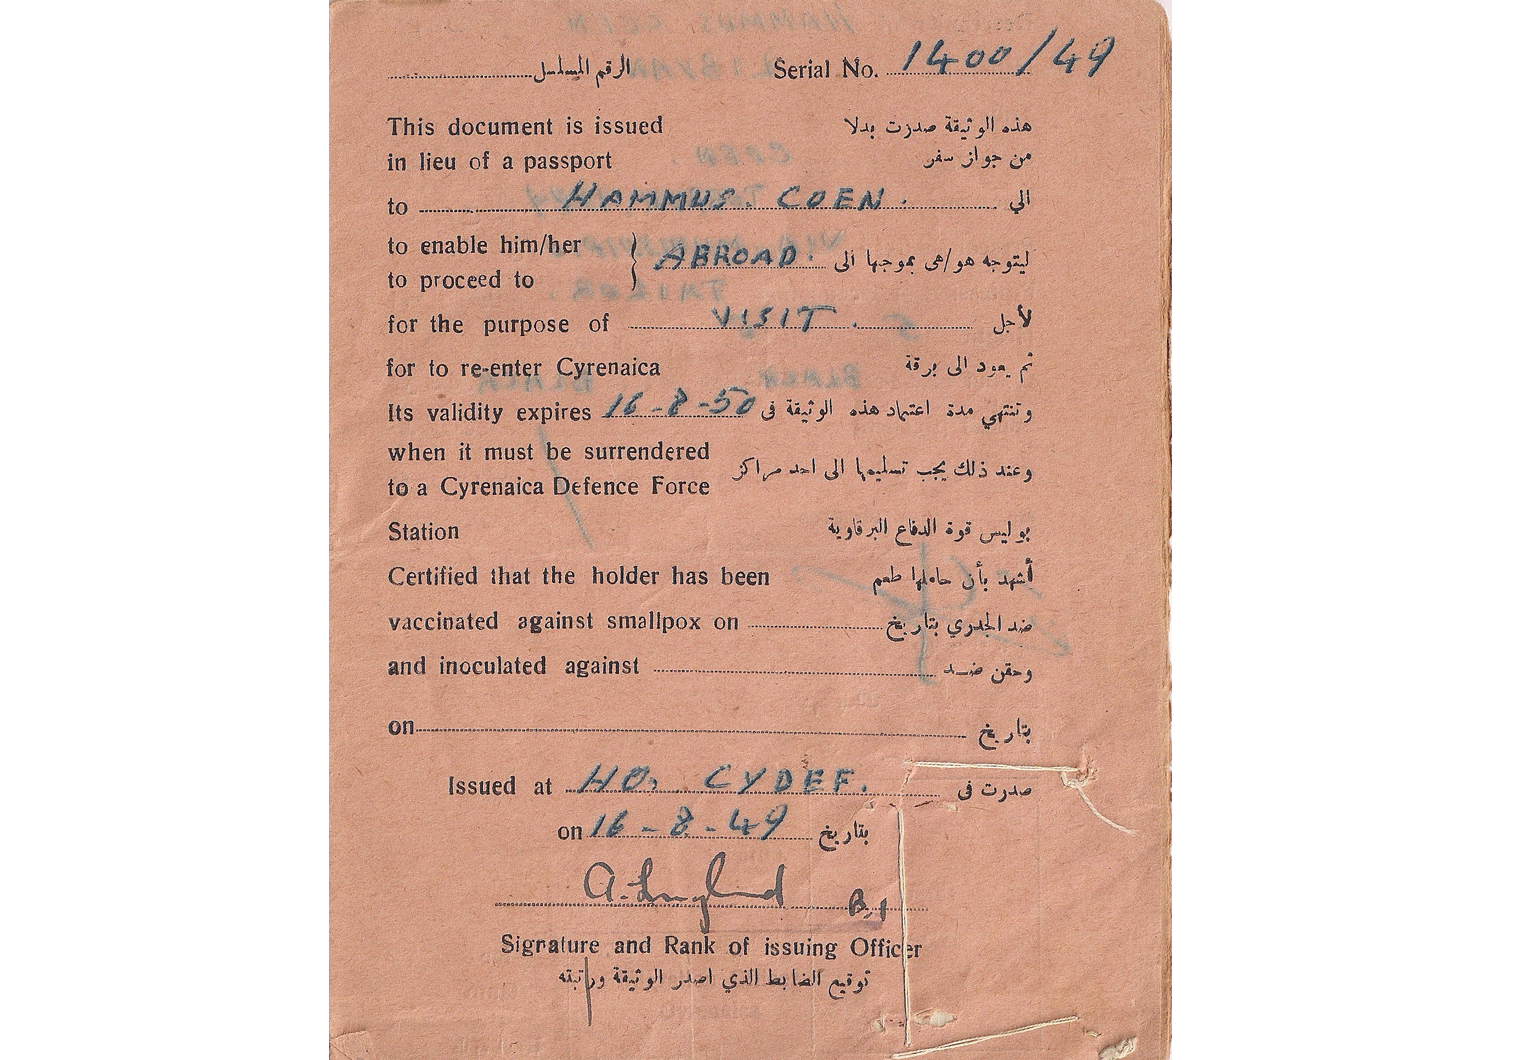 Serial No. 1400/49 الرقم المسلسل
This document is issued هذه الوثيقة صدرت بدلا
in lieu of a passport من جواز سفر
to HAMMUS. COEN. الي
to enable him/her
to proceed to } ABROAD. ليتوجه هو/هى بموجبها الى
for the purpose of VISIT. لأجل
for to re-enter Cyrenaica ثم يعود الى برقة
Its validity expires 16-8-50 وتنتهي مدة اعتماد هذه الوثيقة فى
when it must be surrendered
to a Cyrenaica Defence Force وعند ذلك يجب تسليمها الى احد مراكز
Station بوليس قوة الدفاع البرقاوية
Certified that the holder has been أشهد بأن حاملها طعم
vaccinated against smallpox on ضد الجدري بتاريخ
and inoculated against وحقن ضد
on بتاريخ
Issued at HQ, CYDEF. صدرت فى
on 16-8-49 بتاريخ
Signature and Rank of issuing Officer
توقيع الضابط الذي اصدر الوثيقة ورتبته